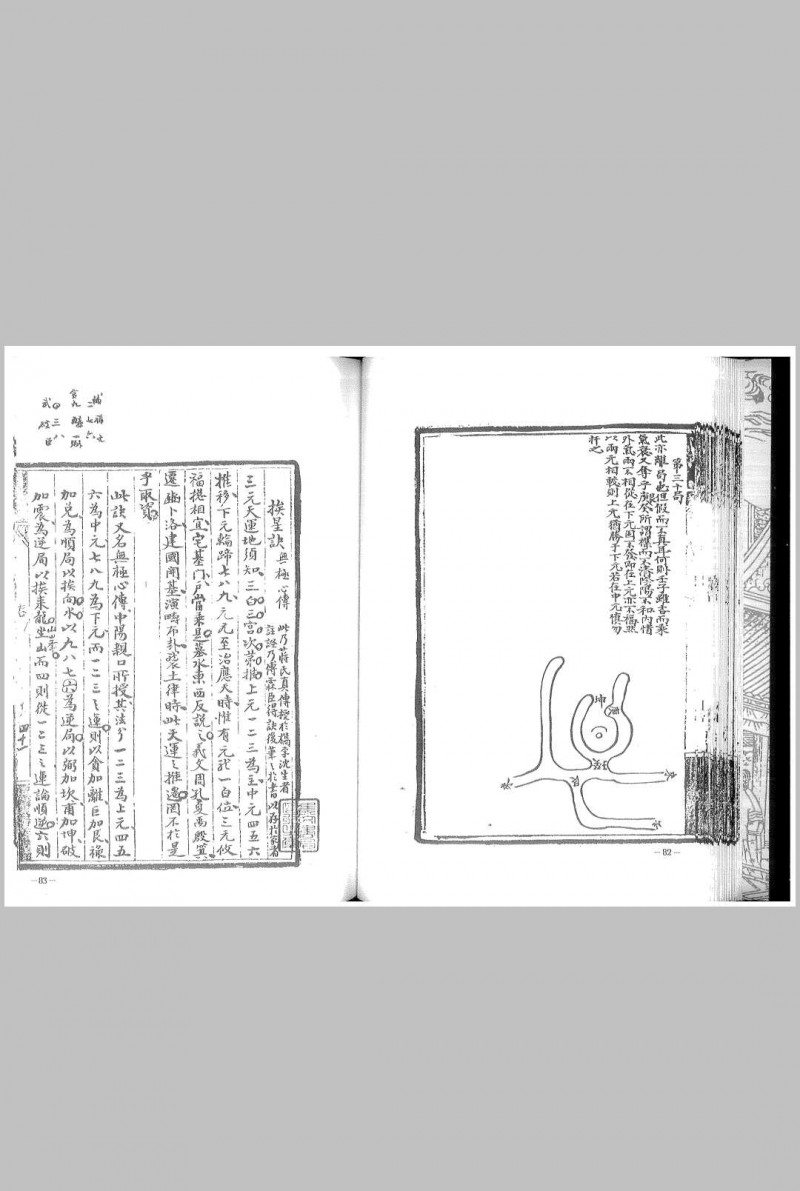 第三十局
此亦離局也但假而不真耳何則壬子雖吉而乘
氣衰又隻于庚癸所謂襟而不清陰陽不和內情
外氣兩不相從在下元固不發即在上元亦不福
以兩元相較則上元猶勝于下元若在中元慎勿
扞之
坤
艮
水
水
水
—82—
挨星訣 無極心傳
此乃蔣氏真傳授於楊字沈生者
註證乃傳霖臣得訣後筆之於書以存於家者
三元天運地須知三白三宮次第推上元一二三為主中元四五六
推移下元輪蹄七八九元元至治應天時惟有元元一白位三元攸
福攝相宜宅基門戶當乘是墓水東西反說之羲文周孔夏禹殷箕
遷豳卜洛建國開基演疇布卦裂土律時此天運之推遷因不於是
乎取資
此訣又名無極心傳中陽親口所授其法分一二三為上元四五
六為中元七八九為下元而一二三之運則以貪加離巨加艮祿
加兌為順局以挨向水以九八七六為逆局以弼加坎輔加坤破
加震為逆局以挨來龍坐山而四則從一二三之運論順逆六則
四十一
輔 祿 文
二 七 六
貪 九
一
四 三 八
武 破 巨
—83—